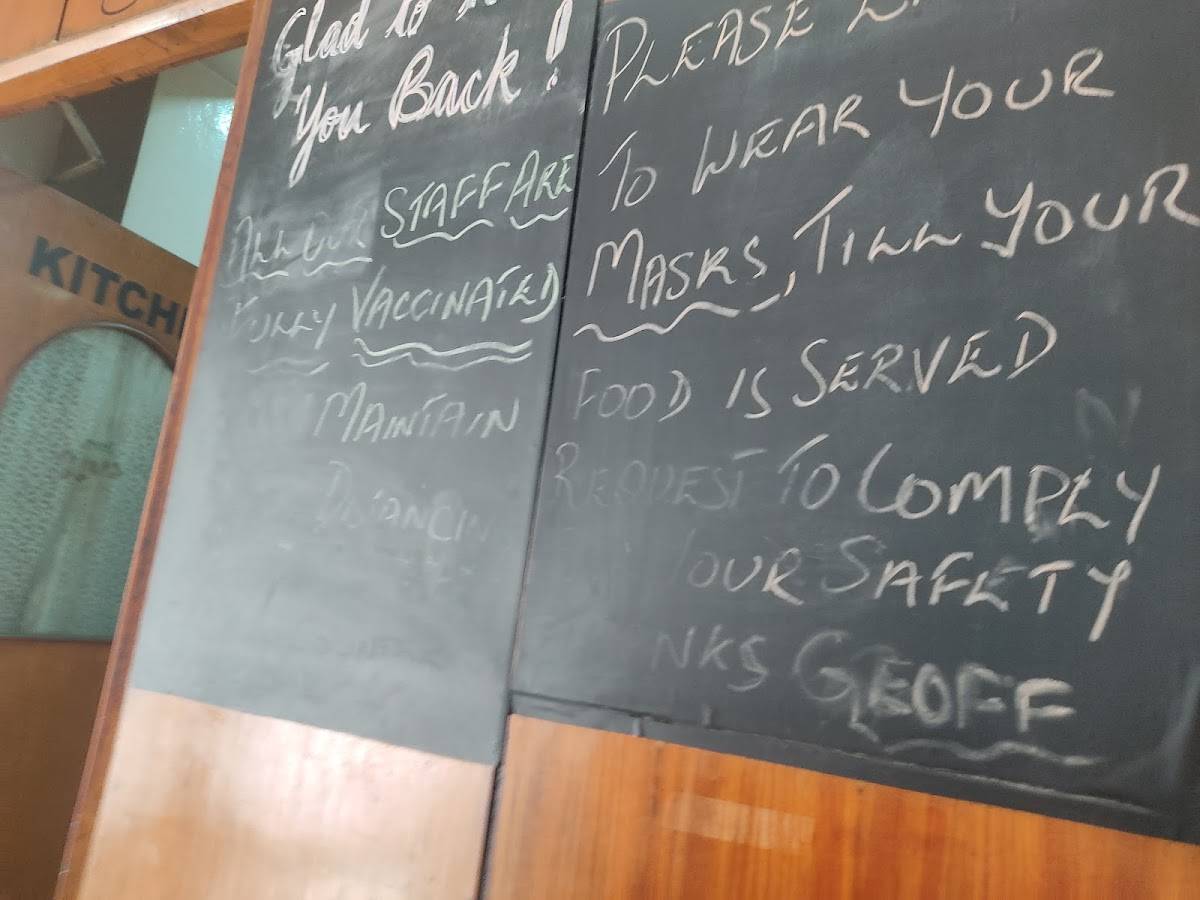 Glad to
You Back!
ALL OUR STAFF ARE
FULLY VACCINATED
MAINTAIN
DISTANCIN
PLEASE
TO WEAR YOUR
MASKS, TILL YOUR
FOOD IS SERVED
REQUEST TO COMPLY
YOUR SAFETY
NKS GEOFF
KITCH